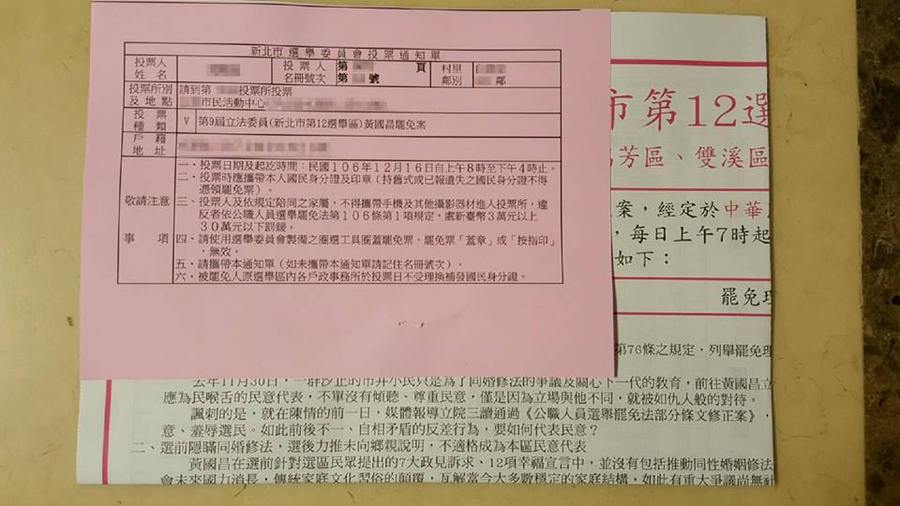 新北市選舉委員會投票通知單
投票人姓名
投票人名冊號次
第 頁
第 號
村里鄰別
鄰
投票所別及地點
請到第 投票所投票
市民活動中心
投票種類
V 第9屆立法委員(新北市第12選舉區)黃國昌罷免案
戶籍地址
敬請注意事項
一、投票日期及起訖時間：民國106年12月16日自上午8時至下午4時止。
二、投票時應攜帶本人國民身分證及印章(持舊式或已報遺失之國民身分證不得
憑領罷免票)。
三、投票人及依規定陪同之家屬，不得攜帶手機及其他攝影器材進入投票所，違
反者依公職人員選舉罷免法第106條第1項規定，處新臺幣3萬元以上
30萬元以下罰鍰。
四、請使用選舉委員會製備之圈選工具圈蓋罷免票，罷免票「蓋章」或「按指印」
，無效。
五、請攜帶本通知單(如未攜帶本通知單請記住名冊號次)。
六、被罷免人原選舉區內各戶政事務所於投票日不受理換補發國民身分證。
市第12選
芳區、雙溪區
案，經定於中華
，每日上午7時起
如下：
罷免理
第76條之規定，列舉罷免理
去年11月30日，一群汐止的市井小民只是為了同婚修法的爭議及關心下一代的教育，前往黃國昌立
應為民喉舌的民意代表，不單沒有傾聽、尊重民意，僅是因為立場與他不同，就被如仇人般的對待。
諷刺的是，就在陳情的前一日，媒體報導立院三讀通過《公職人員選舉罷免法部分條文修正案》，
意、羞辱選民。如此前後不一、自相矛盾的反差行為，要如何代表民意？
二、選前隱瞞同婚修法，選後力推未向鄉親說明，不適格成為本區民意代表
黃國昌在選前針對選區民眾提出的7大政見訴求、12項幸福宣言中，並沒有包括推動同性婚姻修法
會未來國力消長，傳統家庭文化習俗的顛覆，瓦解當今大多數穩定的家庭結構，如此有重大爭議尚無社